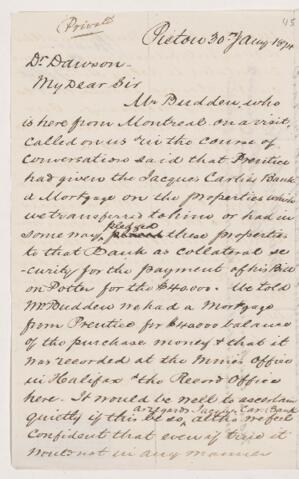 Private
45
Pictou 30th Jany 1874
Dr Dawson
My Dear Sir
Mr Budden, who
is here from Montreal on a visit,
called on us & in the course of
conversation said that Prentice
had given the Jacques Cartier Bank
a Mortgage on the properties which
we transferred to him or had in
some way pledged these properties
to that Bank as collateral se-
curity for the payment of his Bill
on Potter for the $40000. We told
Mr Budden we had a Mortgage
from Prentice for $40000 balance
of the purchase money & that it
was recorded at the Mines Office
in Halifax & the Record Office
here. It would be well to ascertain
as regards Jacques Car. Bank
quietly if this be so, altho we feel
confident that even if true it
would not in any manner